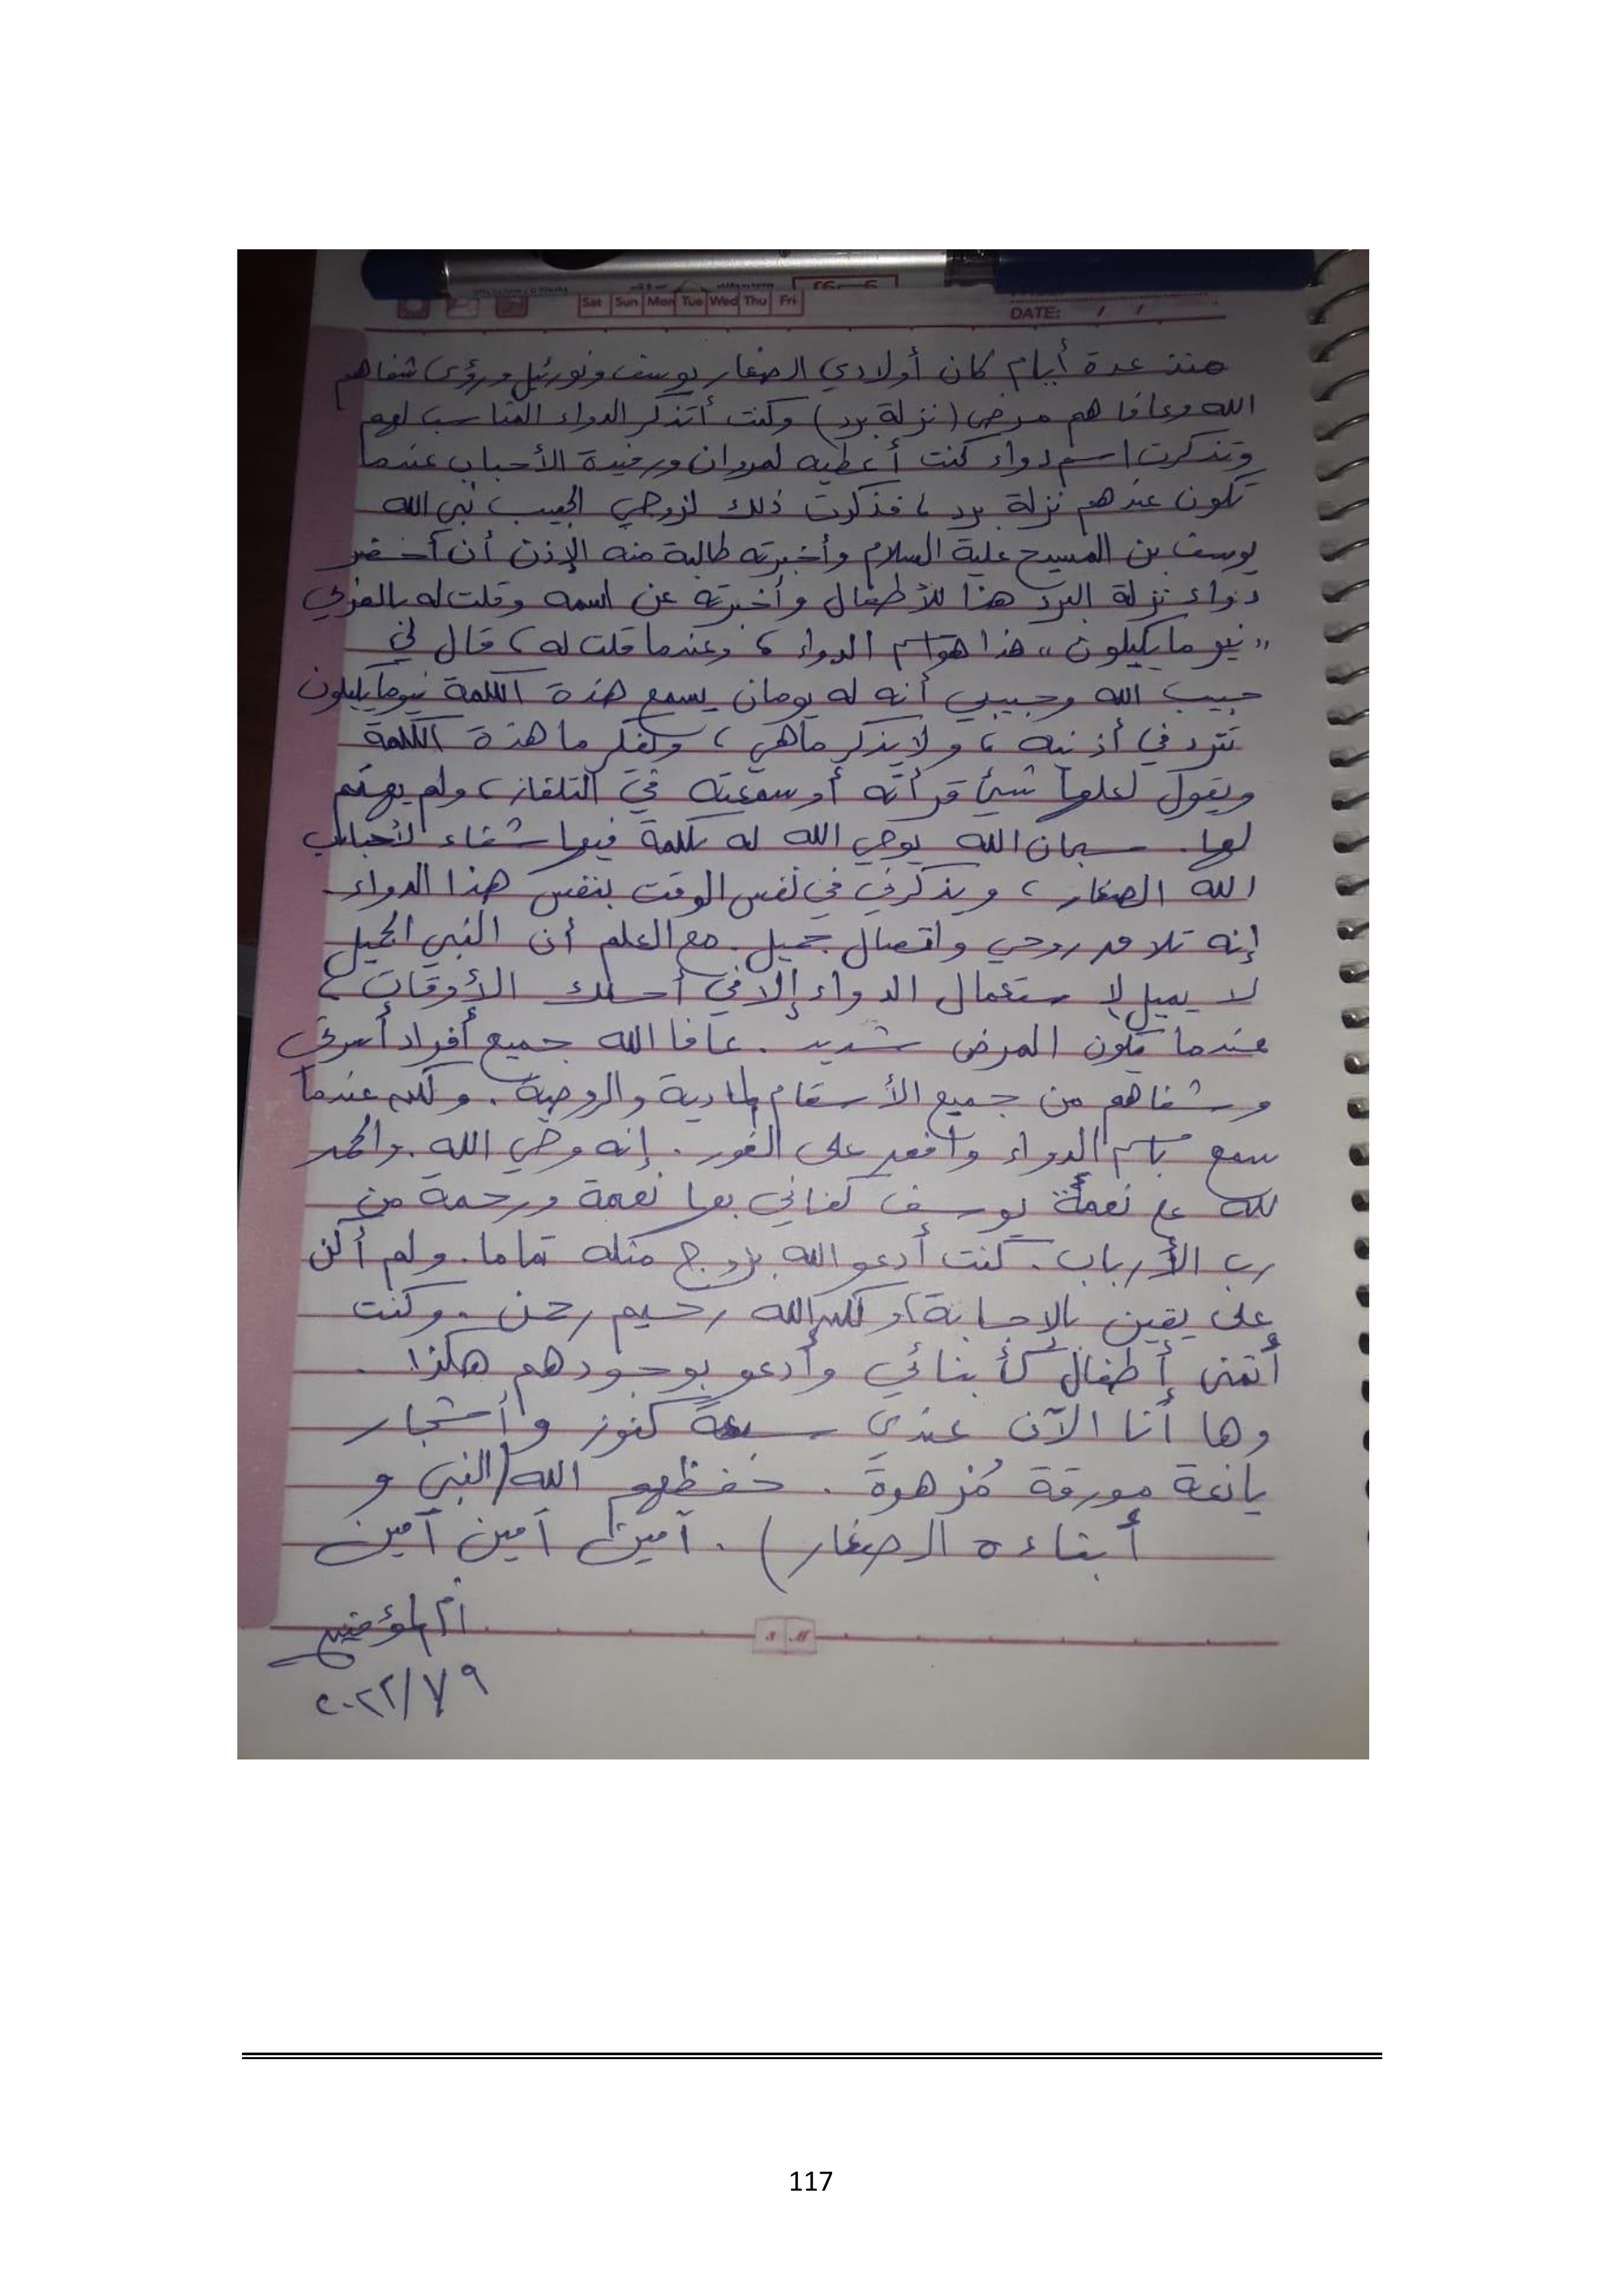 Sat Sun Mon Tue Wed Thu Fri
DATE: / /
منذ عدة أيام كان أولادي الصغار يوسف ونورئيل ورؤى شفاهم
الله وعافاهم مرضى (نزلة برد) وكنت أتذكر الدواء المناسب لهم
وتذكرت اسم دواء كنت أعطيه لمروان ورفيدة الأحباب عندما
تكون عندهم نزلة برد، فذكرت ذلك لزوجي الحبيب نبي الله
يوسف بن المسيح علية السلام وأخبرته طالبة منه الإذن أن أحضر
دواء نزلة البرد هذا للأطفال وأخبرته عن اسمه وقلت له بالعربي
"نيومايكيلون" هذا هو اسم الدواء، وعندما قلت له، قال لي
حبيب الله وحبيبي أنه له يومان يسمع هذة الكلمة نيومايكيلون
تتردد في أذنيه، ولا يذكر ماهي، ويفكر ما هذة الكلمة
ويقول لعلها شئ قرأته أو سمعته في التلفاز، ولم يهتم
لها. سبحان الله يوحي الله له بكلمة فيها شفاء لأحباب
الله الصغار، ويذكرني في نفس الوقت بنفس هذا الدواء.
إنه تلاقد روحي واتصال جميل. مع العلم أن النبي الجميل
لا يميل لإستعمال الدواء إلا في أحلك الأوقات،
عندما يكون المرض شديد. عافا الله جميع أفراد أسرتي
وشفاهم من جميع الأسقام المادية والروحية. ولكن عندما
سمع باسم الدواء وافق على الفور. إنه وحي الله. والحمد
لله على نعمة يوسف كفاني بها نعمة ورحمة من
رب الأرباب. كنت أدعو الله بزوج مثله تماما. ولم أكن
على يقين بالإجابة، ولكن الله رحيم رحمن. وكنت
أتمنى أطفال كأبنائي وأدعو بوجودهم هكذا.
وها أنا الآن عندي سبعة كنوز وأشجار
يانعة مورقة مُزهرة. حفظهم الله (النبي و
أبناءه الصغار). آمين آمين آمين
أم المؤمنين
٢٠٢٢/٧/٩
S M
117